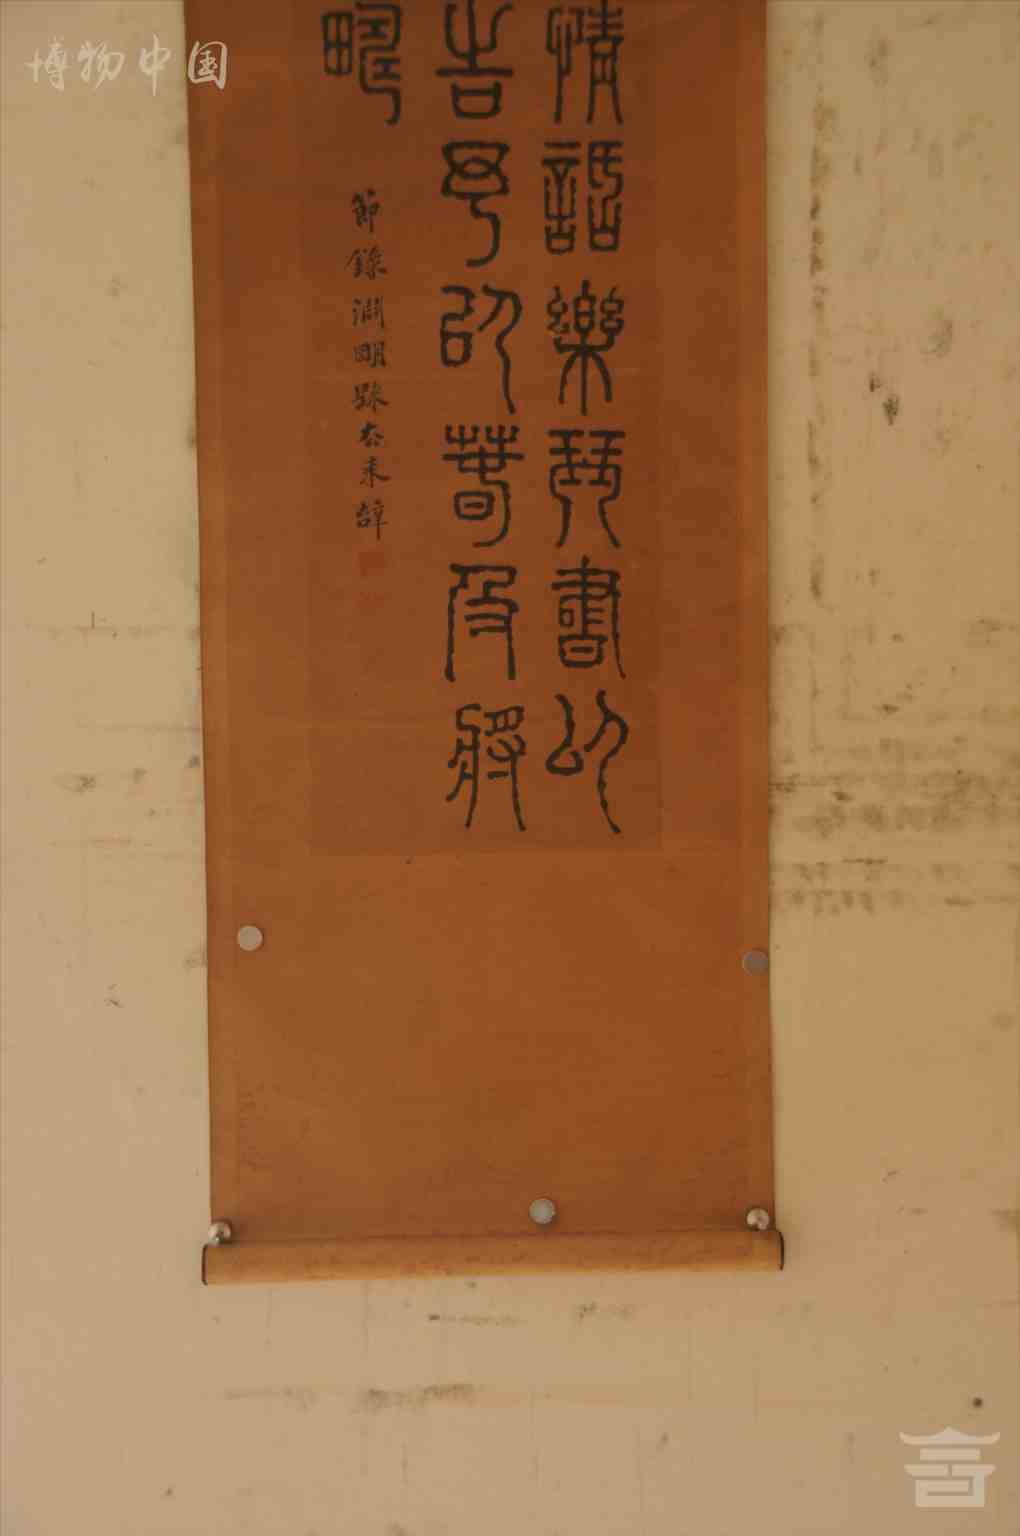 博物中国
情話樂琴書以
告予以萅及將
疇
節錄淵明歸去来辭